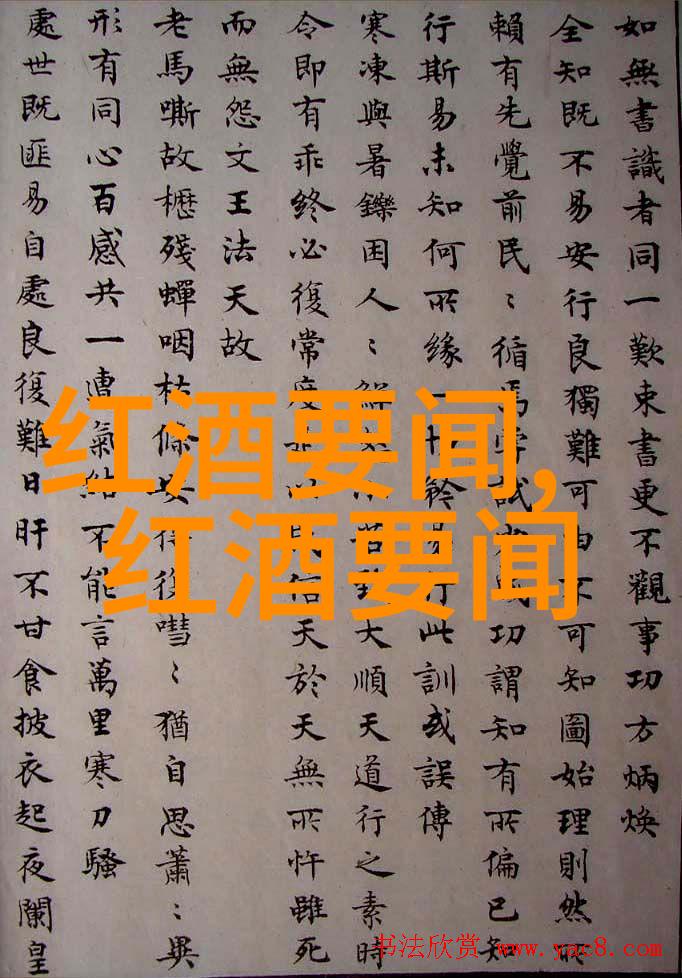 如無書識者同一歎束書更不觀事功方炳煥
全知既不易安行良獨難可由不可知圖始理則然所
賴有先覺前民〻循焉學試成功謂知有所偏已知
行斯易未知何所緣一聆易行此訓或誤傳
寒凍與暑鑠困人〻苦對大順天道行之素時
令即有乖終必復常度以民信天於天無所忤雖死
而無怨文王法天故
老馬嘶故櫪殘蟬咽枯條安得復嘒〻猶自思蕭〻異
形有同心百感共一遭氣結不能言萬里寒刀騷
處世既匪易自處良復難日旰不甘食披衣起夜闌皇
红酒要闻,
红酒要闻
书法欣赏 www.yac8.com